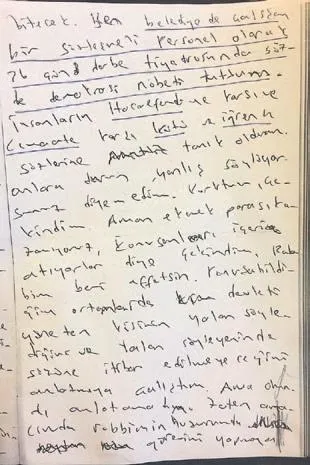 bitecek. Ben belediyede çalışan
bir sözleşmeli personel olarak
26 gün darbe tiyatrosunda söz-
de demokrasi nöbeti tuttum.
İnsanların Hocaefendiye karşı ve
Cemaate karşı kötü ve iğrenç
sözlerine tanık oldum.
onlara durun yanlış söylüyor
sunuz diyemedim. Korktum, çe-
kindim. Aman ekmek parası ka-
zanıyoruz, konuşanları içeriye
atıyorlar diye çekindim, Rab
bim beni affetsin. Konuşabildi-
ğim ortamlarda devleti
yöneten kişinin yalan söyle-
diğini ve yalan söyleyenin de
sözüne itibar edilmeyeceğini
anlatmaya çalıştım. Ama olma-
dı, anlatamadım. Zaten
Rabbimin huzurunda
görevini yapmayan